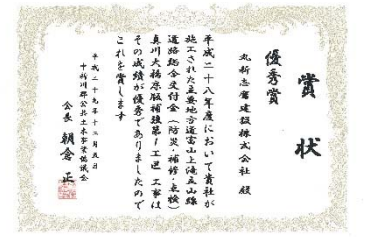 賞状
優秀賞
丸新志鷹建設株式会社 殿
平成二十八年度において貴社が
施工された主要地方道富山上滝立山線
道路総合交付金(防災・補修・点検)
真川大橋床版補強第1工区工事は
その成績が優秀でありましたので
これを賞します
平成二十九年十二月五日
中新川郡公共土木事業協議会
会長 朝倉 正